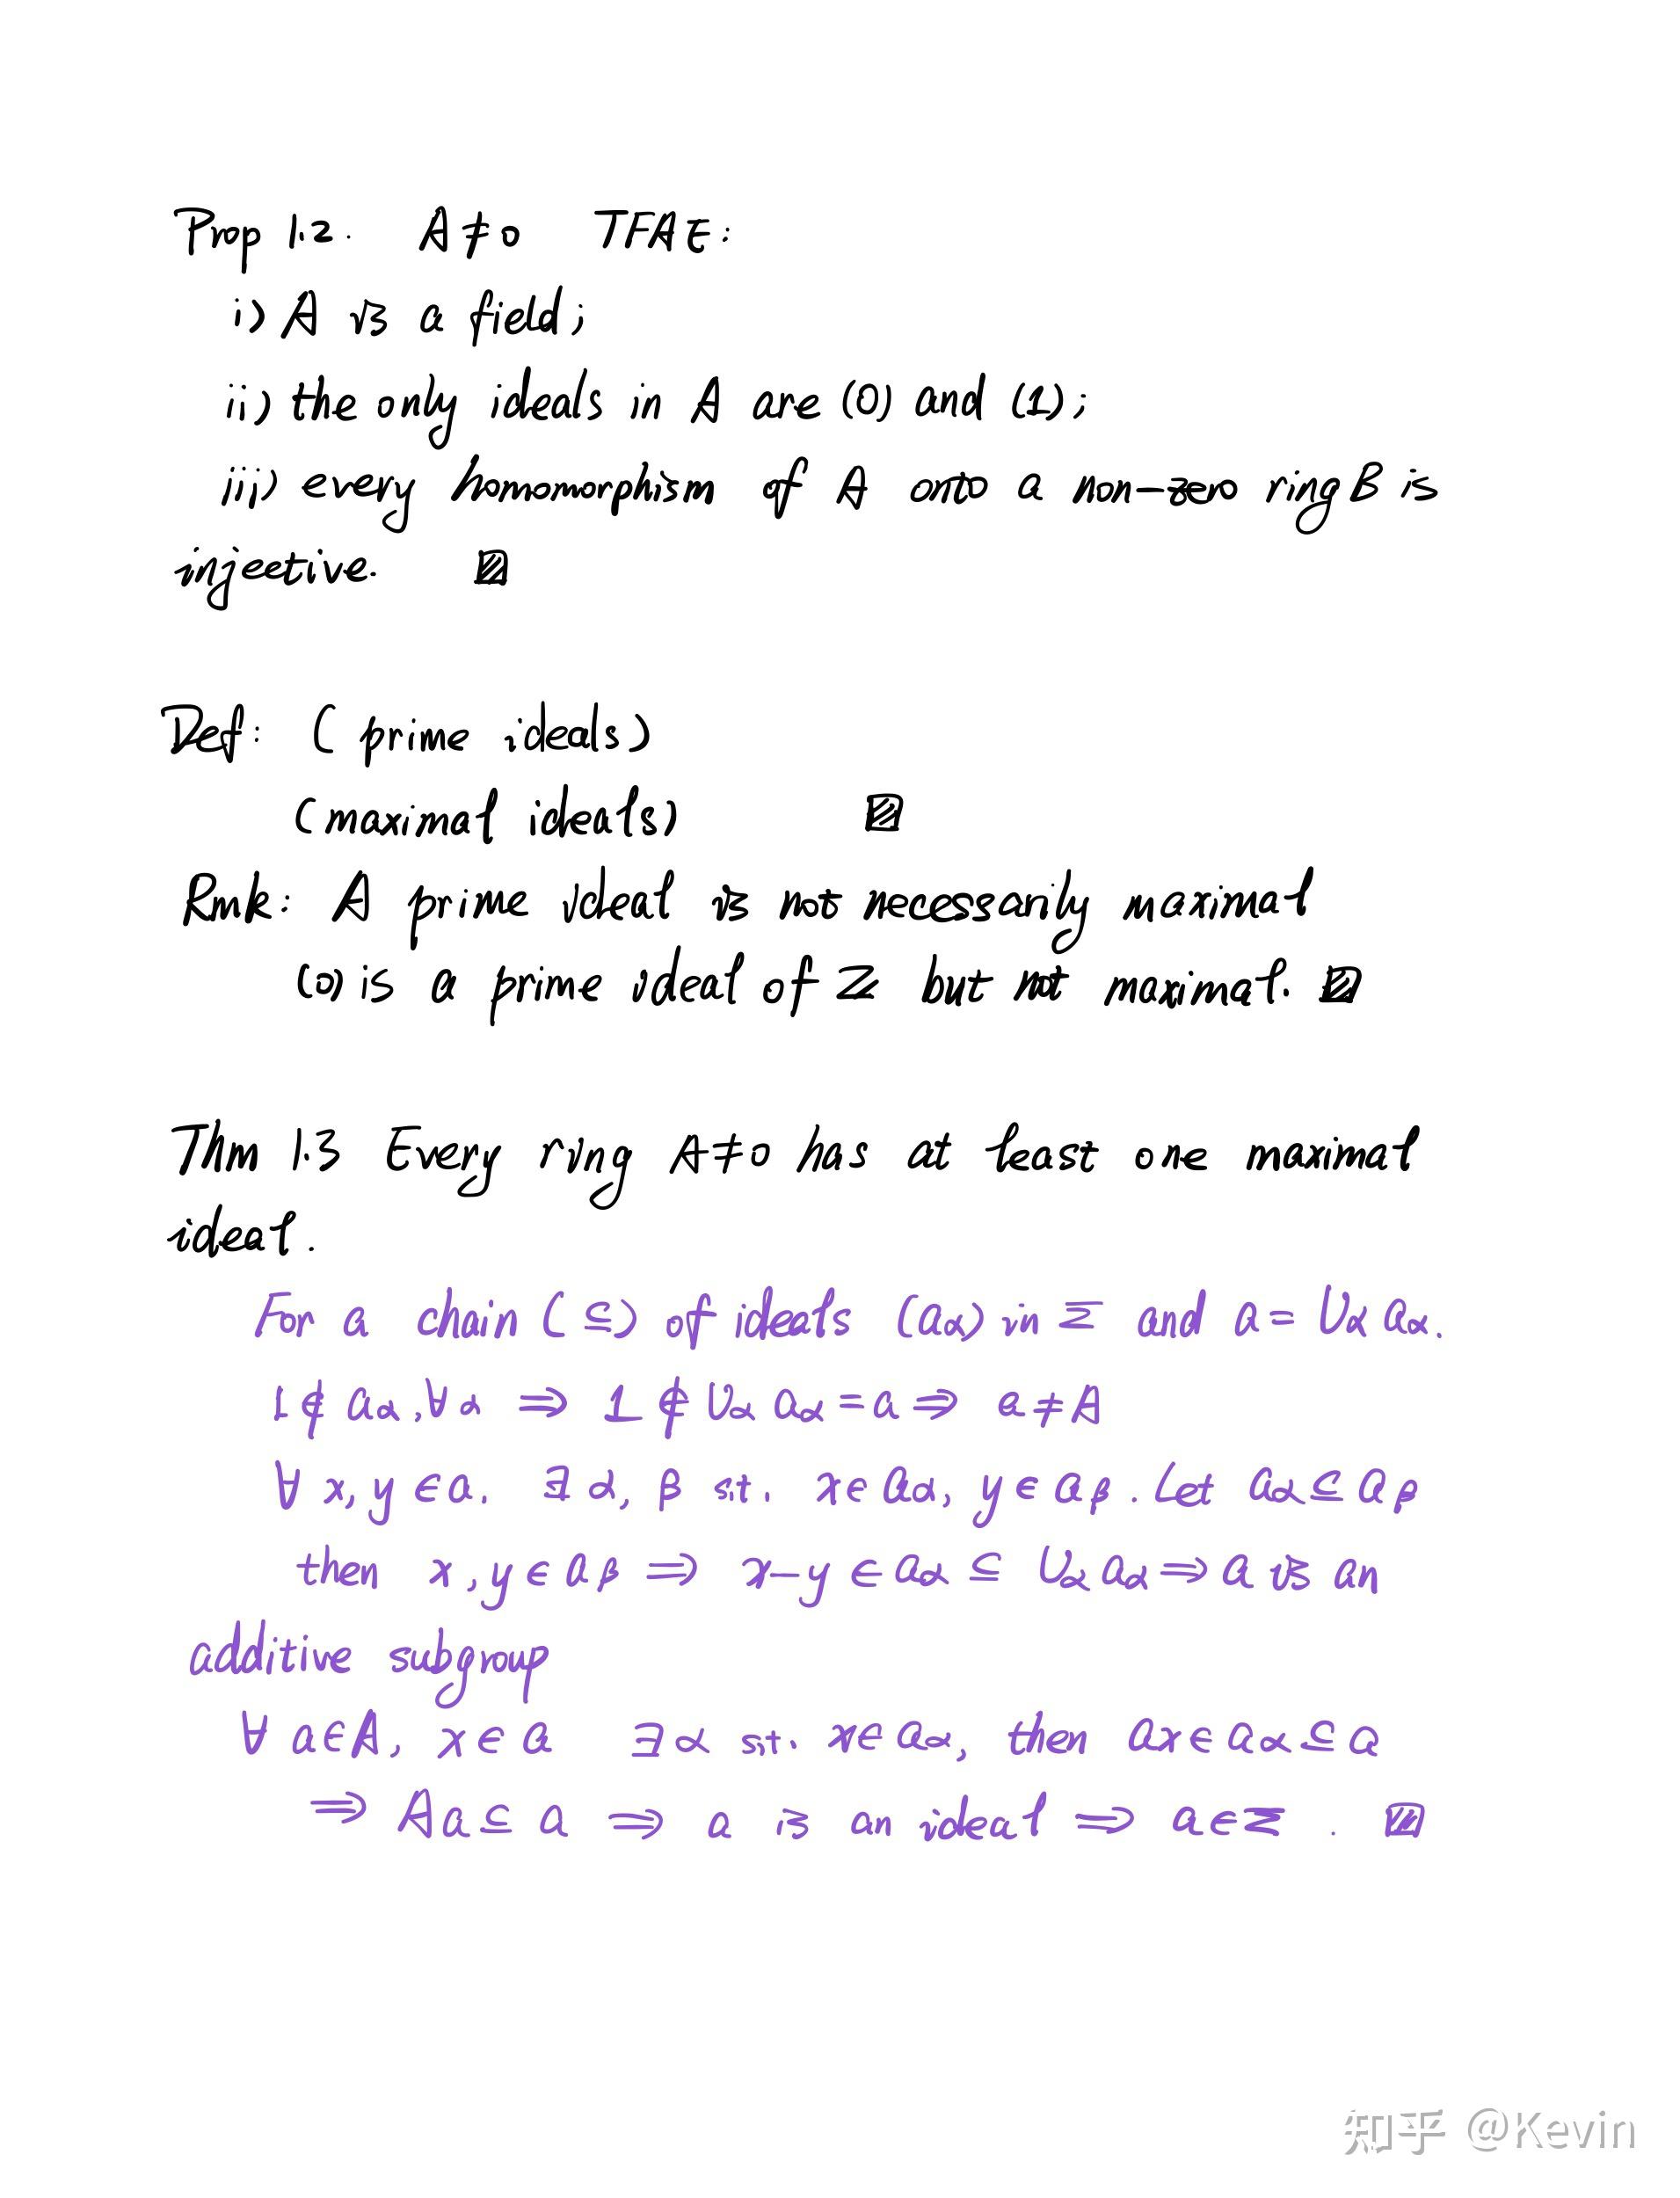 Prop 1.2. A≠0 TFAE:
i) A is a field;
ii) the only ideals in A are (0) and (1);
iii) every homomorphism of A onto a non-zero ring B is
injective. ▨
Def: (prime ideals)
(maximal ideals) ▨
Rmk: A prime ideal is not necessarily maximal
(0) is a prime ideal of ℤ but not maximal. ▨
Thm 1.3 Every ring A≠0 has at least one maximal
ideal.
For a chain (⊆) of ideals (aα) in Σ and a = ∪α aα.
1 ∉ aα, ∀α ⇒ 1 ∉ ∪α aα = a ⇒ a ≠ A
∀ x, y ∈ a. ∃ α, β s.t. x ∈ aα, y ∈ aβ. Let aα ⊆ aβ
then x, y ∈ aβ ⇒ x-y ∈ aα ⊆ ∪α aα ⇒ a is an
additive subgroup
∀ a ∈ A, x ∈ a ∃ α s.t. x ∈ aα, then ax ∈ aα ⊆ a
⇒ Aa ⊆ a ⇒ a is an ideal ⇒ a ∈ Σ. ▨
知乎 @Kevin